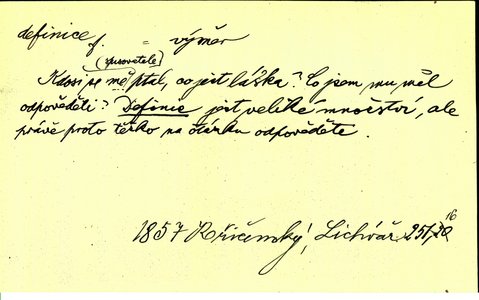 definice f. = výměr
(spisovatele)
Kdosi se mě ptal, co jest láska? Co jsem mu měl
odpověděti? Definic jest veliké množství, ale
právě proto těžko na otázku odpověděte.
1857 Říčenský, Lichvář 251,
16